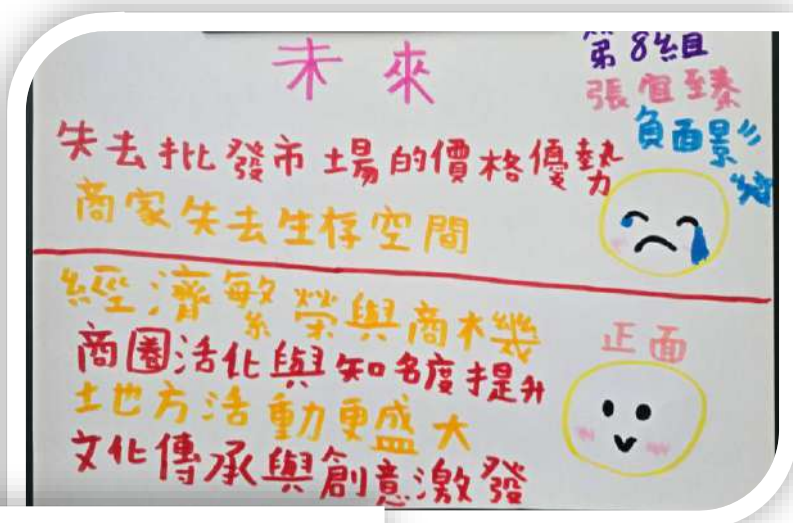 未來
第8組
張宜蓁
負面影響
失去批發市場的價格優勢
商家失去生存空間
正面
經濟繁榮與商機
商圈活化與知名度提升
土地方活動更盛大
文化傳承與創意激發